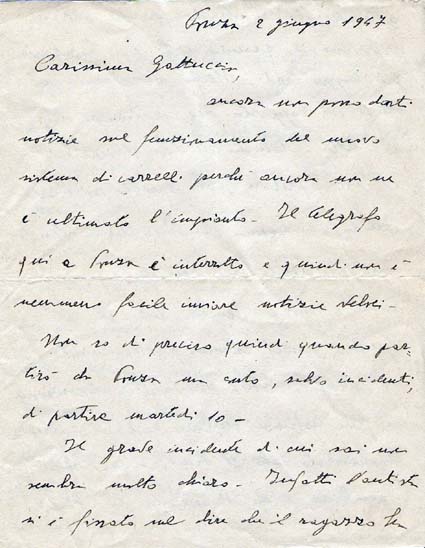 Ponza 2 giugno 1947
Carissima Gattuccia,
ancora non posso darti
notizie sul funzionamento del nuovo
sistema di carrelli perché ancora non ne
è ultimato l'impianto - Il telegrafo
qui a Ponza è interrotto e quindi non è
nemmeno facile inviare notizie veloci -
Non so di preciso quindi quando par-
tirò da Ponza ma conto, salvo incidenti,
di partire martedì 10 -
Il grave incidente di cui sai non
sembra molto chiaro - Infatti l'autista
si è fissato nel dire che il ragazzo ha